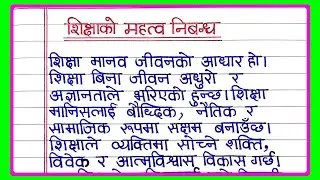 शिक्षाको महत्व निबन्ध
शिक्षा मानव जीवनको आधार हो।
शिक्षा बिना जीवन अधुरो र
अज्ञानताले भरिएको हुन्छ। शिक्षा
मानिसलाई बौध्दिक, नैतिक र
सामाजिक रूपमा सक्षम बनाउँछ।
शिक्षाले व्यक्तिमा सोच्ने शक्ति,
विवेक र आत्मविश्वास विकास गर्छ।